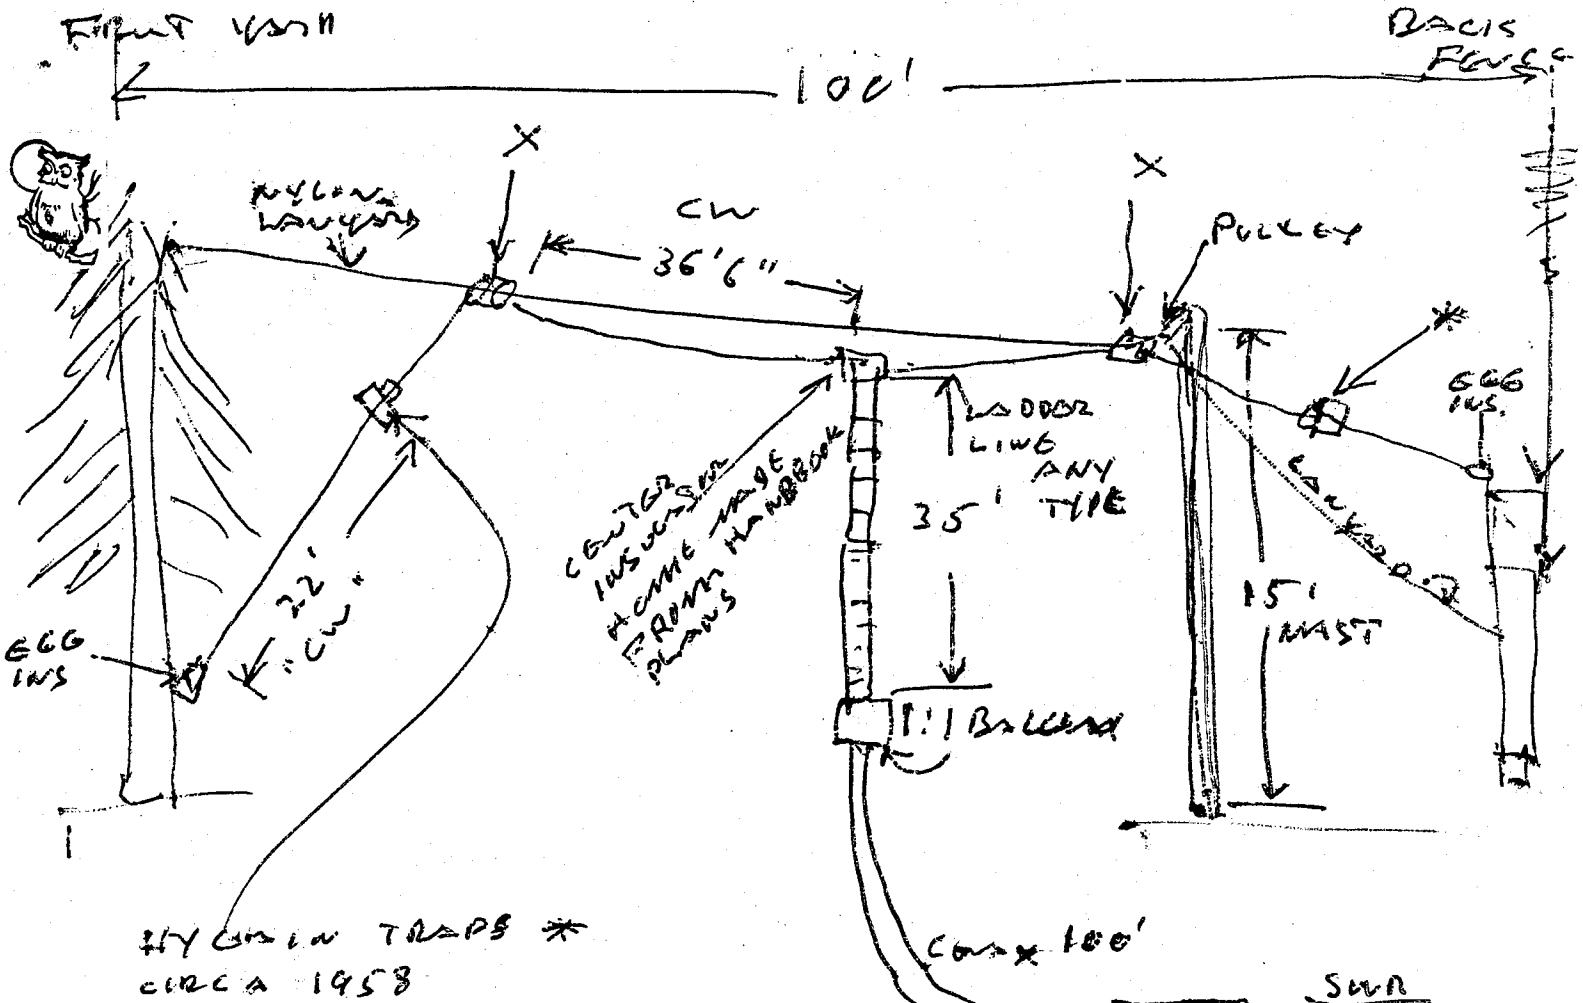 FRONT YARD
BACK
FENCE
100'
X
X
NYLON
LANYARD
CW
36' 6"
PULLEY
*
EGG
INS.
LADDER
LINE
ANY
TYPE
35'
CENTER
INSULATOR
HOME MADE
FROM HANDBOOK
PLANS
LANYARD
22'
"CW"
15'
MAST
EGG
INS
1:1 BALUN
HYGAIN TRAPS *
CIRCA 1958
COAX 100'
SWR